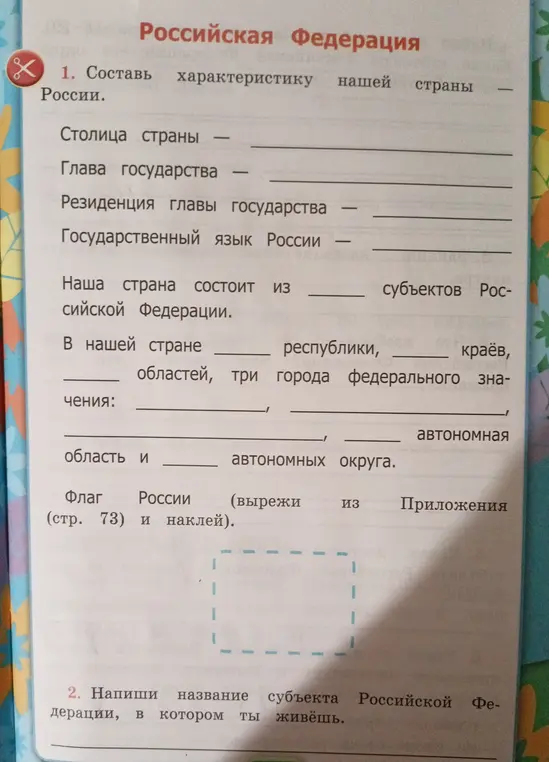 Российская Федерация
1. Составь характеристику нашей страны —
России.
Столица страны — ____
Глава государства — ____
Резиденция главы государства — ____
Государственный язык России — ____
Наша страна состоит из ____ субъектов Рос-
сийской Федерации.
В нашей стране ____ республики, ____ краёв,
____ областей, три города федерального зна-
чения: ____, ____,
____, ____ автономная
область и ____ автономных округа.
Флаг России (вырежи из Приложения
(стр. 73) и наклей).
2. Напиши название субъекта Российской Фе-
дерации, в котором ты живёшь.